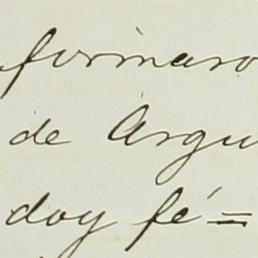 firmaro
de Argu
doy fé=